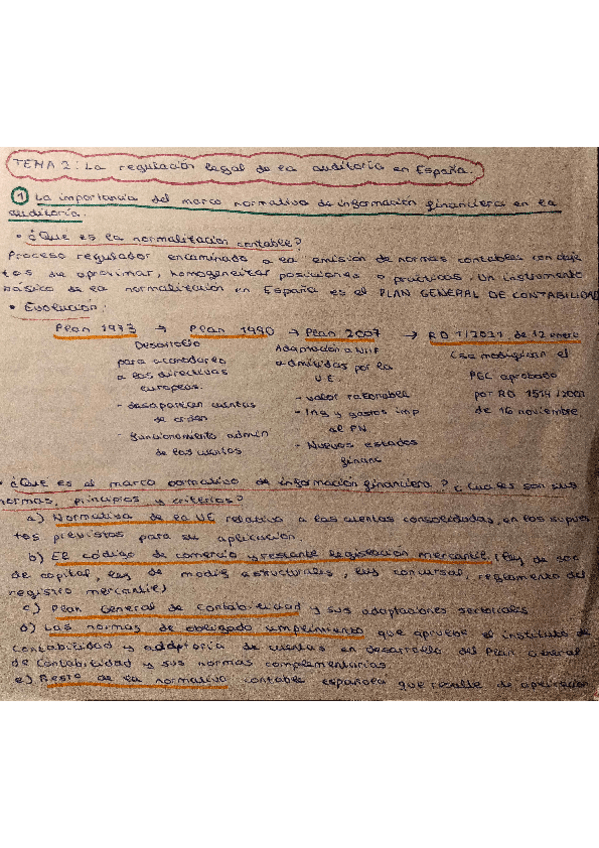 TEMA 2: La regulación legal de la auditoría en España.
1 La importancia del marco normativo de información financiera en la
auditoría.
• ¿Que es la normalización contable?
Proceso regulador encaminado a la emisión de normas contables con obje
tos de aproximar, homogeneizar posiciones o prácticas. Un instrumento
básico de la normalización en España es el PLAN GENERAL DE CONTABILIDAD
• Evolución:
Plan 1973 → Plan 1990 → Plan 2007 → RD 1/2021 de 12 enero
Desarrollo
para acomodarlo
a las directivas
europeas.
- desaparecen cuentas
de orden
- funcionamiento admin
de las cuentas
Adaptación a NIIF
admitidas por la
U.E.
- valor razonable
- Ing y gastos imp
al PN
- Nuevos estados
financ
se modifican el
PGC aprobado
por RD 1514/2007
de 16 noviembre
• ¿Que es el marco normativo de información financiera? ¿Cuales son sus
normas, principios y criterios?
a) Normativa de la UE relativa a las cuentas consolidadas, en los supues
tos previstos para su aplicación.
b) El código de comercio y restante legislación mercantil. (ley de soc
de capital, ley de modif estructurales, ley concursal, reglamento del
registro mercantil)
c) Plan General de Contabilidad y sus adaptaciones sectoriales
d) Las normas de obligado cumplimiento que apruebe el instituto de
contabilidad y auditoría de cuentas en desarrollo del Plan General
de Contabilidad y sus normas complementarias.
e) Resto de la normativa contable española que resulte de aplicación